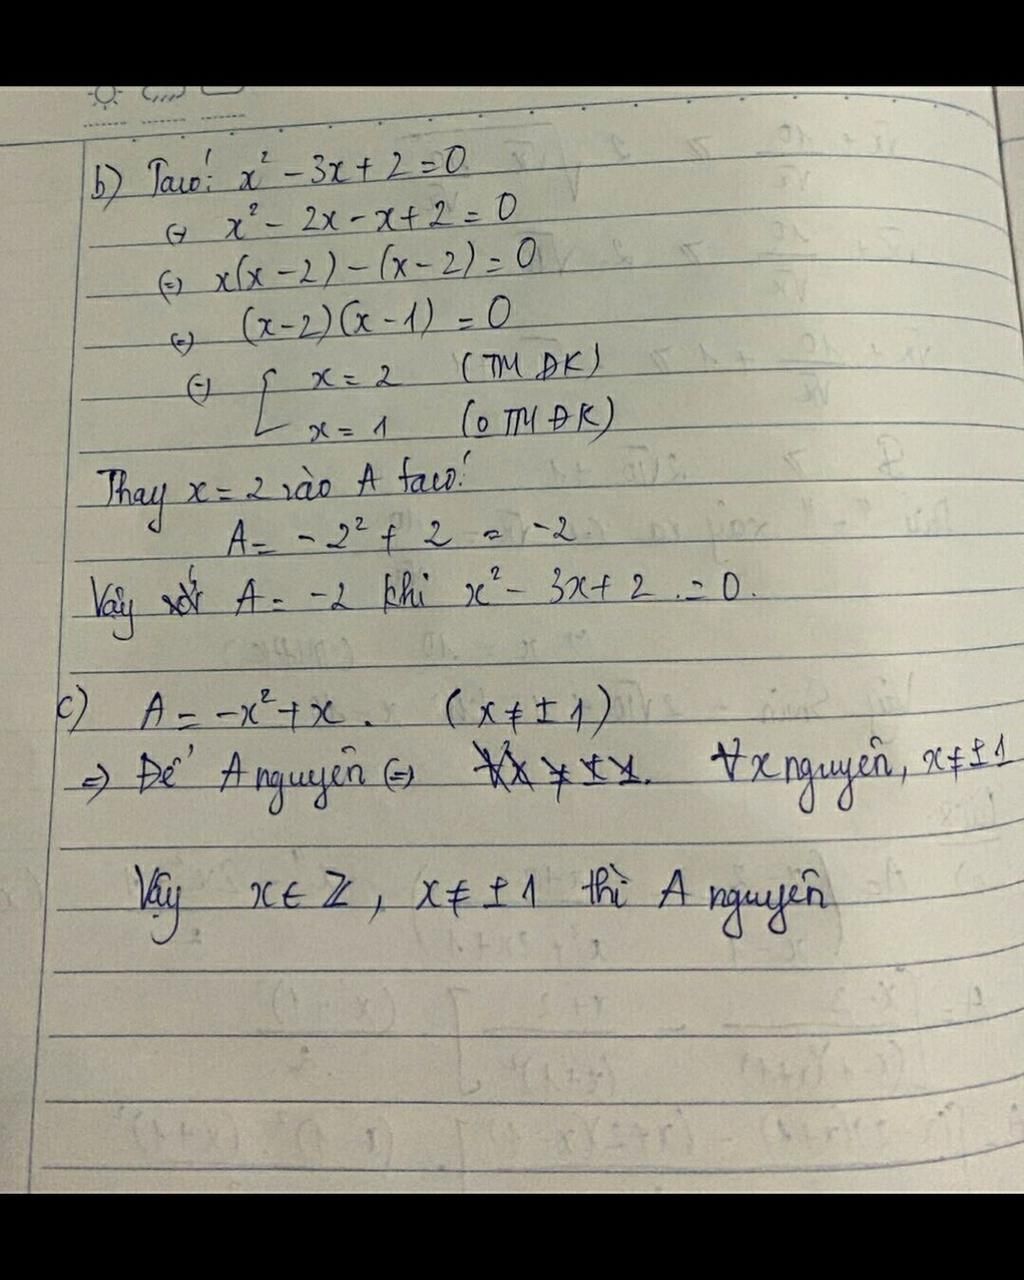 b) Ta có: x² - 3x + 2 = 0
(=) x² - 2x - x + 2 = 0
(=) x(x - 2) - (x - 2) = 0
(=) (x - 2)(x - 1) = 0
(=) [ x = 2 (TM ĐK)
x = 1 (0 TM ĐK)
Thay x = 2 vào A ta có:
A = - 2² + 2 = -2
Vậy A = -2 khi x² - 3x + 2 = 0.
c) A = -x² + x. (x ≠ ± 1)
=> Để A nguyên (=) ∀x nguyên, x ≠ ± 1
Vậy x ∈ Z, x ≠ ± 1 thì A nguyên